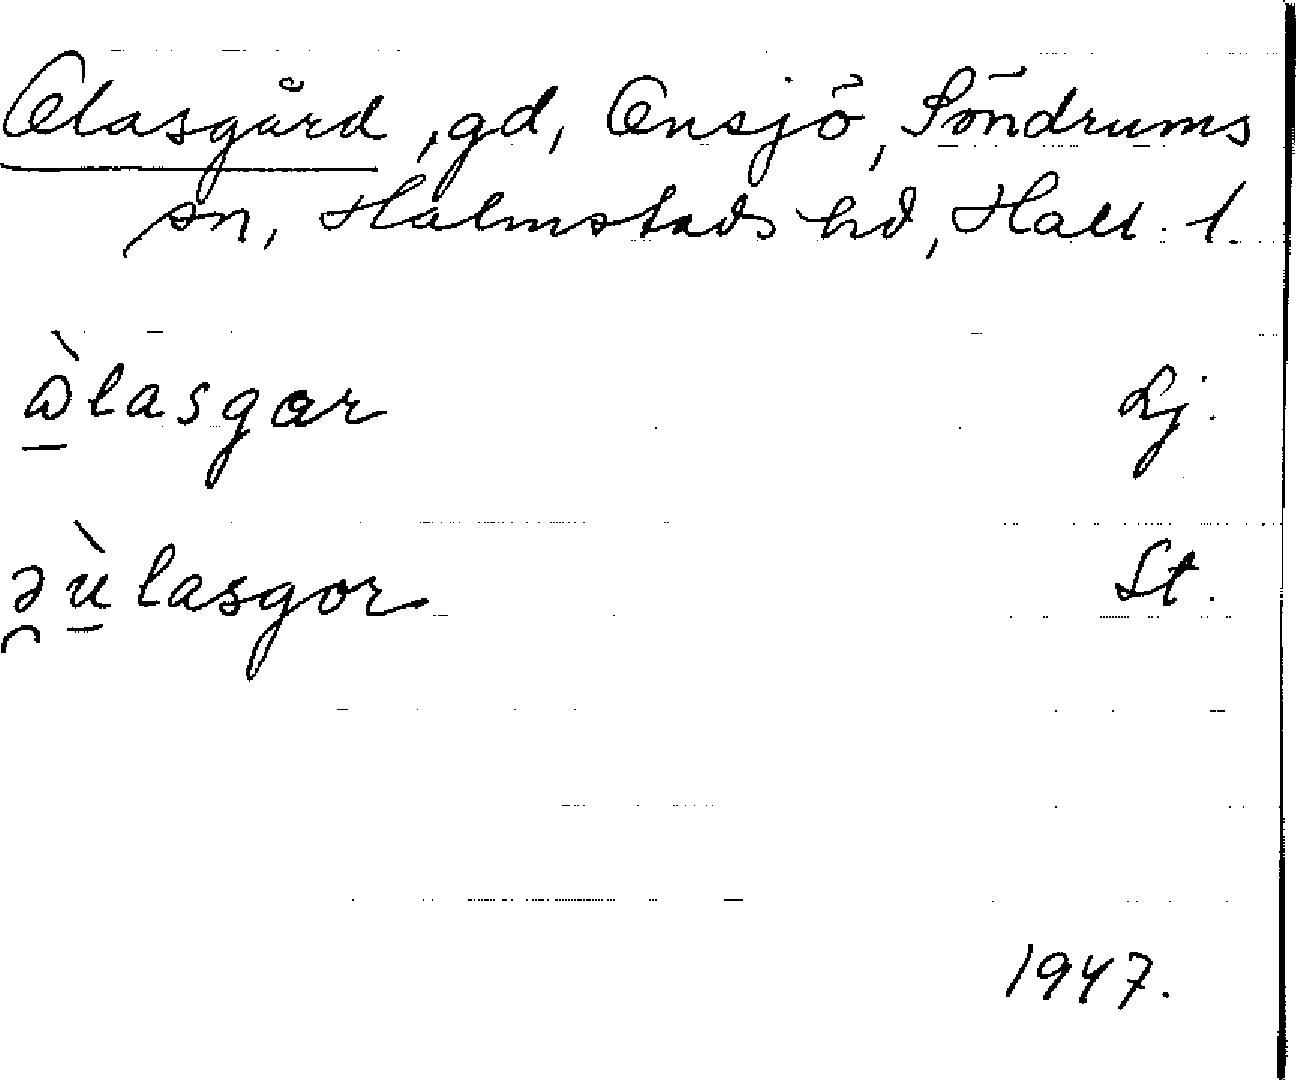 Olasgård, gd, Onsjö, Söndrums
sn, Halmstads hd, Hall. l.
ὼlasgar Lj.
əùlasgor St.
1947.